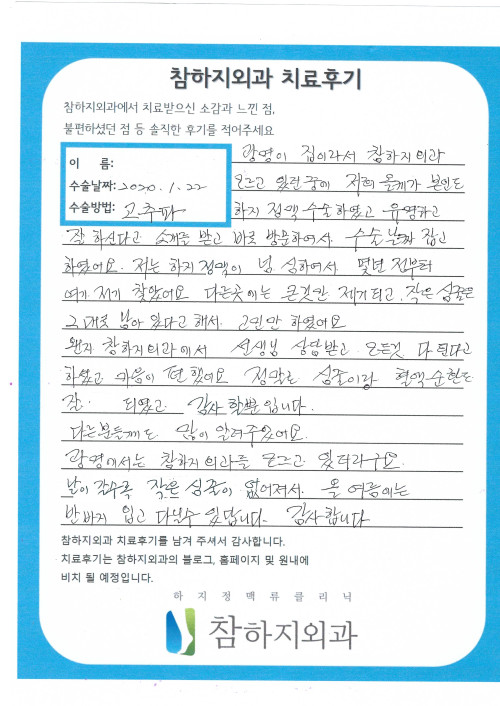 참하지외과 치료후기
참하지외과에서 치료받으신 소감과 느낀 점,
불편하셨던 점 등 솔직한 후기를 적어주세요
광명이 집이라서 참하지외과
이 름:
수술날짜: 2020. 1. 22
모르고 있던중에 저희 올케가 본인도
수술방법: 고주파
하지 정맥 수술하였고 유명하고
잘 하신다고 소개를 받고 바로 방문하여서. 수술 날짜 잡고
하였어요. 저는 하지정맥이 넘 심하여서 몇년 전부터
여기 저기 찾았어요 다른곳에는 큰것만 제거되고, 작은 실줄은
그대로 남아 있다고 해서. 고민만 하였어요
왠지 참하지외과에서 선생님 상담받고 모든것 다 된다고
하였고 마음이 편했어요 정말로 실줄이랑 혈액순환도
잘. 되였고 감사할뿐입니다.
다른분들께도 많이 알려주었어요.
광명에서는 참하지외과를 모르고 있더라구요.
날이 갈수록 작은 실줄이 없어져서. 올 여름에는
반바지 입고 다닐수 있답니다. 감사합니다
참하지외과 치료후기를 남겨 주셔서 감사합니다.
치료후기는 참하지외과의 블로그, 홈페이지 및 원내에
비치 될 예정입니다.
하지정맥류클리닉
참하지외과